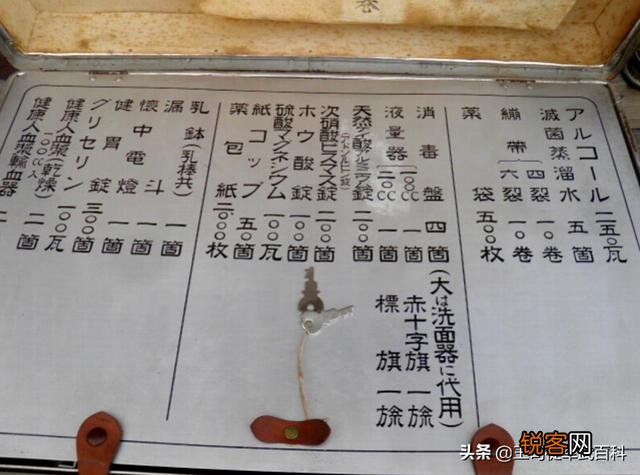 巻
アルコール 二五〇瓦
滅菌蒸溜水 五箇
繃帯 四裂 一〇巻
六裂 一〇巻
薬袋 五〇〇枚
消毒盤 四箇
(大は洗面器に代用)
液量器 一〇〇cc 一箇
二〇cc 一箇
赤十字旗 一旒
標旗 一旒
次硝酸ビスマス錠 二〇〇
ホウ酸錠 一〇〇箇
硫酸マグネシウム 一〇〇瓦
紙コップ 五〇箇
薬包紙 二〇〇〇枚
乳鉢(乳棒共) 一箇
漏斗 一箇
懐中電燈 一箇
健胃錠 三〇〇箇
グリセリン 一〇〇瓦
健康人血漿(乾燥) 一〇〇cc入 二箇
健康人血漿輸血器
头条
锐客网